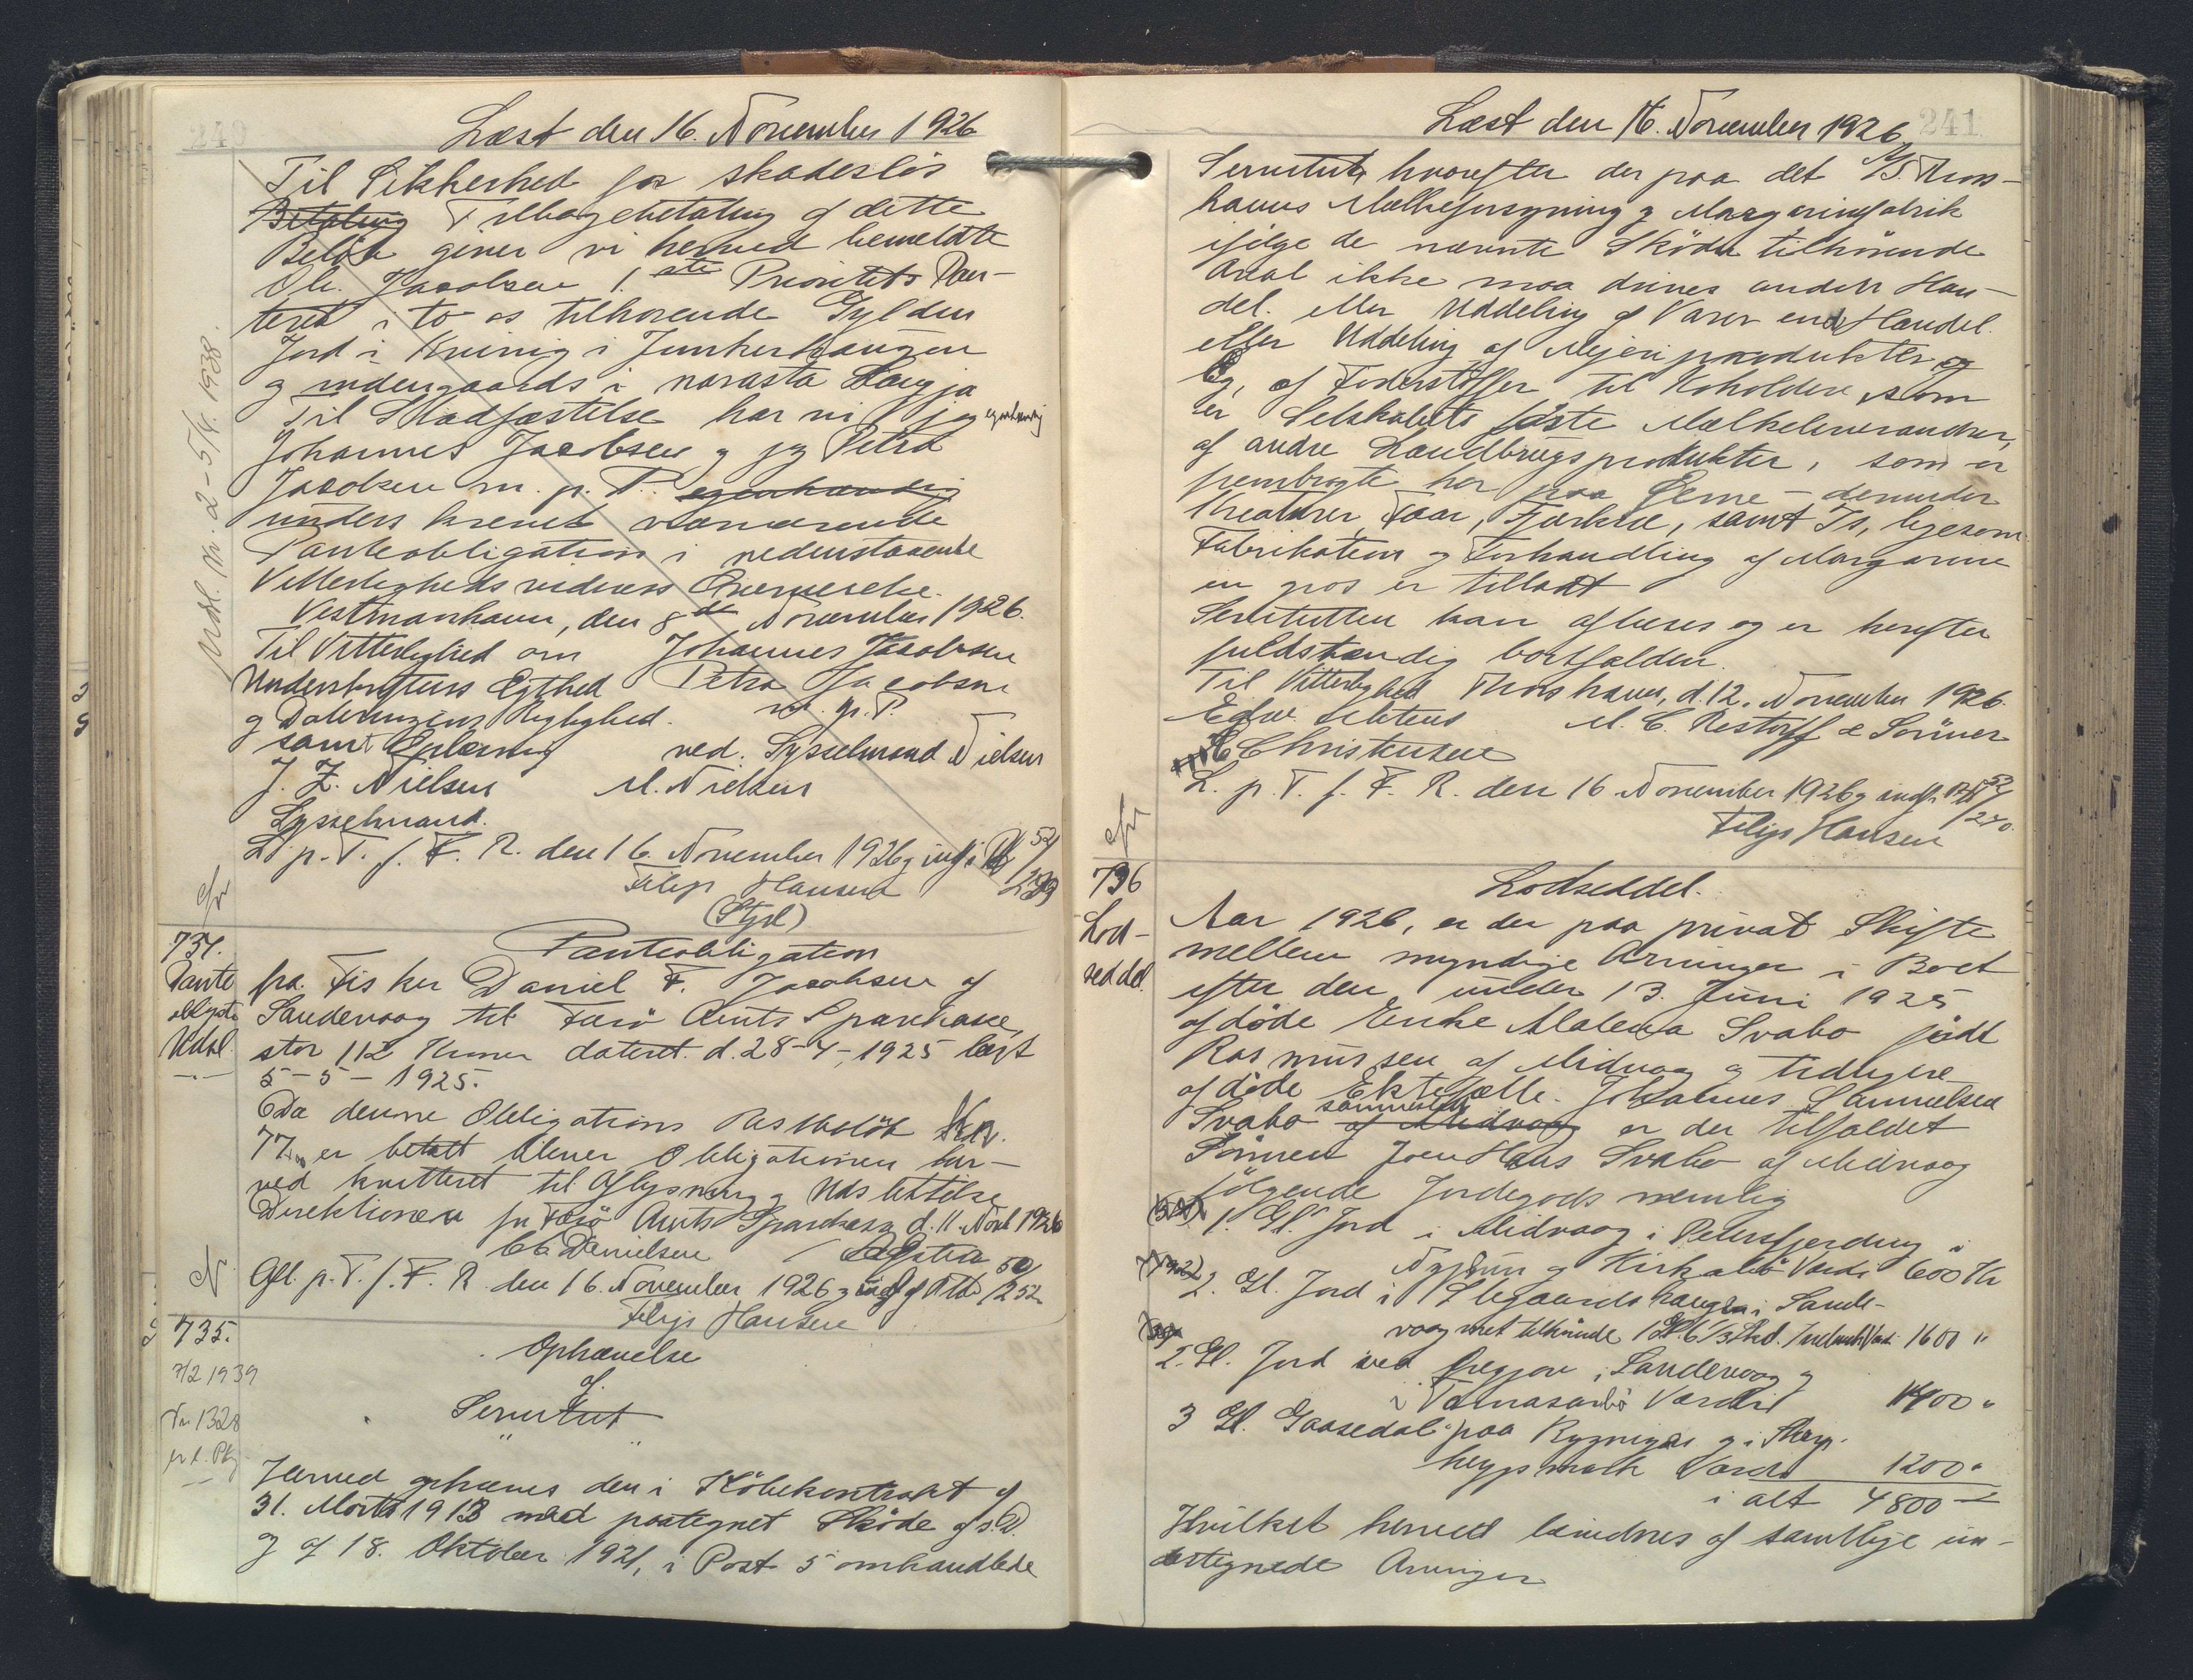 240
Læst den 16. November 1926
Til Sikkerhed for skadeslös
Betaling Tilbagebetaling af dette
Beløb giver vi herved bemeldte
Ole Jacobsen 1.ste Prioritets Pan-
teret i to os tilhørende Gylden
Jord i Kvivig i Junkerhaugen
og indengaards i
Til Stadfæstelse har vi jeg egenhændig
Johannes Jacobsen og jeg Petra
Jacobsen m. p. P. egenhændig
underskrevet nærværende
Panteobligation i nedenstaaende
Vitterlighedsvidners Overværelse.
Vestmanhavn, den 8de November 1926.
Til Vitterlighed om Johannes Jacobsen
Underskriftens Ægthed Petra Jacobsen
og Dateringens Rigtighed. m. p. P.
samt Oplæsning ved. Sysselmand Nielsen
J. Z. Nielsen M. Nielsen
Sysselmand.
L. p. T. f. F. R. den 16. November 1926 og indf i Pb 52/239
Filip Hansen
(Stpl)
Udsl. Nr. 2 - 5/4. 1938.
cfr
734.
Pante
obligati
Udsl.
Panteobligation
fra Fisker Daniel F. Jacobsen af
Sandevaag til Færö Amts Sparekasse,
stor 112 Kroner dateret. d. 28-4-1925 læst
5-5-1925.
Da denne Obligations Restbelöb Kr.
77,00 er betalt bliver Obligationen her-
ved kvitteret til Aflysning og Udslettelse
Direktionen for Færö Amts Sparekasse d. 11 Novb 1926
Danielsen
Afl. p. T. f. F. R. den 16. November 1926 og indf i Pb 50/252
Filip Hansen
735.
7/2 1939
Nr 1328
Ophævelse
af
Servitut
Herved ophæves den i Köbekontrakt af
31. Marts 1913 med paategnet Sköde af s. D.
og af 18. Oktober 1921, i Post 5 omhandlede
241
Læst den 16. November 1926
Servitut, hvorefter der paa det A/S. Thors-
havns Mælkeforsyning og Margarinefabrik
ifölge de nævnte Sköder tilhörende
Areal ikke maa drives anden Han-
del. eller Uddeling af Varer end Handel.
eller Uddeling af Mejeriprodukter og
Æg, af Foderstoffer til Koholdere, som
er Selskabets faste Mælkeleverandører,
af andre Landbrugsprodukter, som er
frembragte her paa Öerne - derunder
Kreaturer, Faar, Fjerkræ, samt Is, ligesom
Fabrikation og Forhandling af Margarine
en gros er tilladt
Servitutten kan aflæses og er herefter
fuldstændig bortfalden.
Til Vitterlighed Thorshavn, d. 12. November 1926.
Edw. M. C. Restorff & Sönner
Christensen
L. p. T. f. F. R. den 16 November 1926 og indf. Pb 52/240.
Filip Hansen
cfr
736
Lod-
seddel.
Lodseddel.
Aar 1926, er der paa privat Skifte
mellem myndige Arvinger i Boet
efter den under 13. Juni 1925
afdöde Enke Malena Svabo född
Rasmussen af Midvaag og tidligere
afdöde Ektefælle. Johannes Samuelsen
Svabo sammesteds af Midvaag er der tilfaldet
Sönnen Joen Hans Svabo af Midvaag
fölgende Jordegods nemlig
1. Gl. Jord i Midvaag i Petersfjerding i
og Kirkabö Værdi 600 Kr
2. Gl. Jord i i Sande-
vaag met tilhörende 1600 "
2. Gl. Jord ved i Sandevaag og
i Værdi 1400 "
3 Gl. Gaasedal paa og i
Værdi 1200 "
i alt 4800 -
Hvilket herved af samtlige un-
dertegnede Arvinger